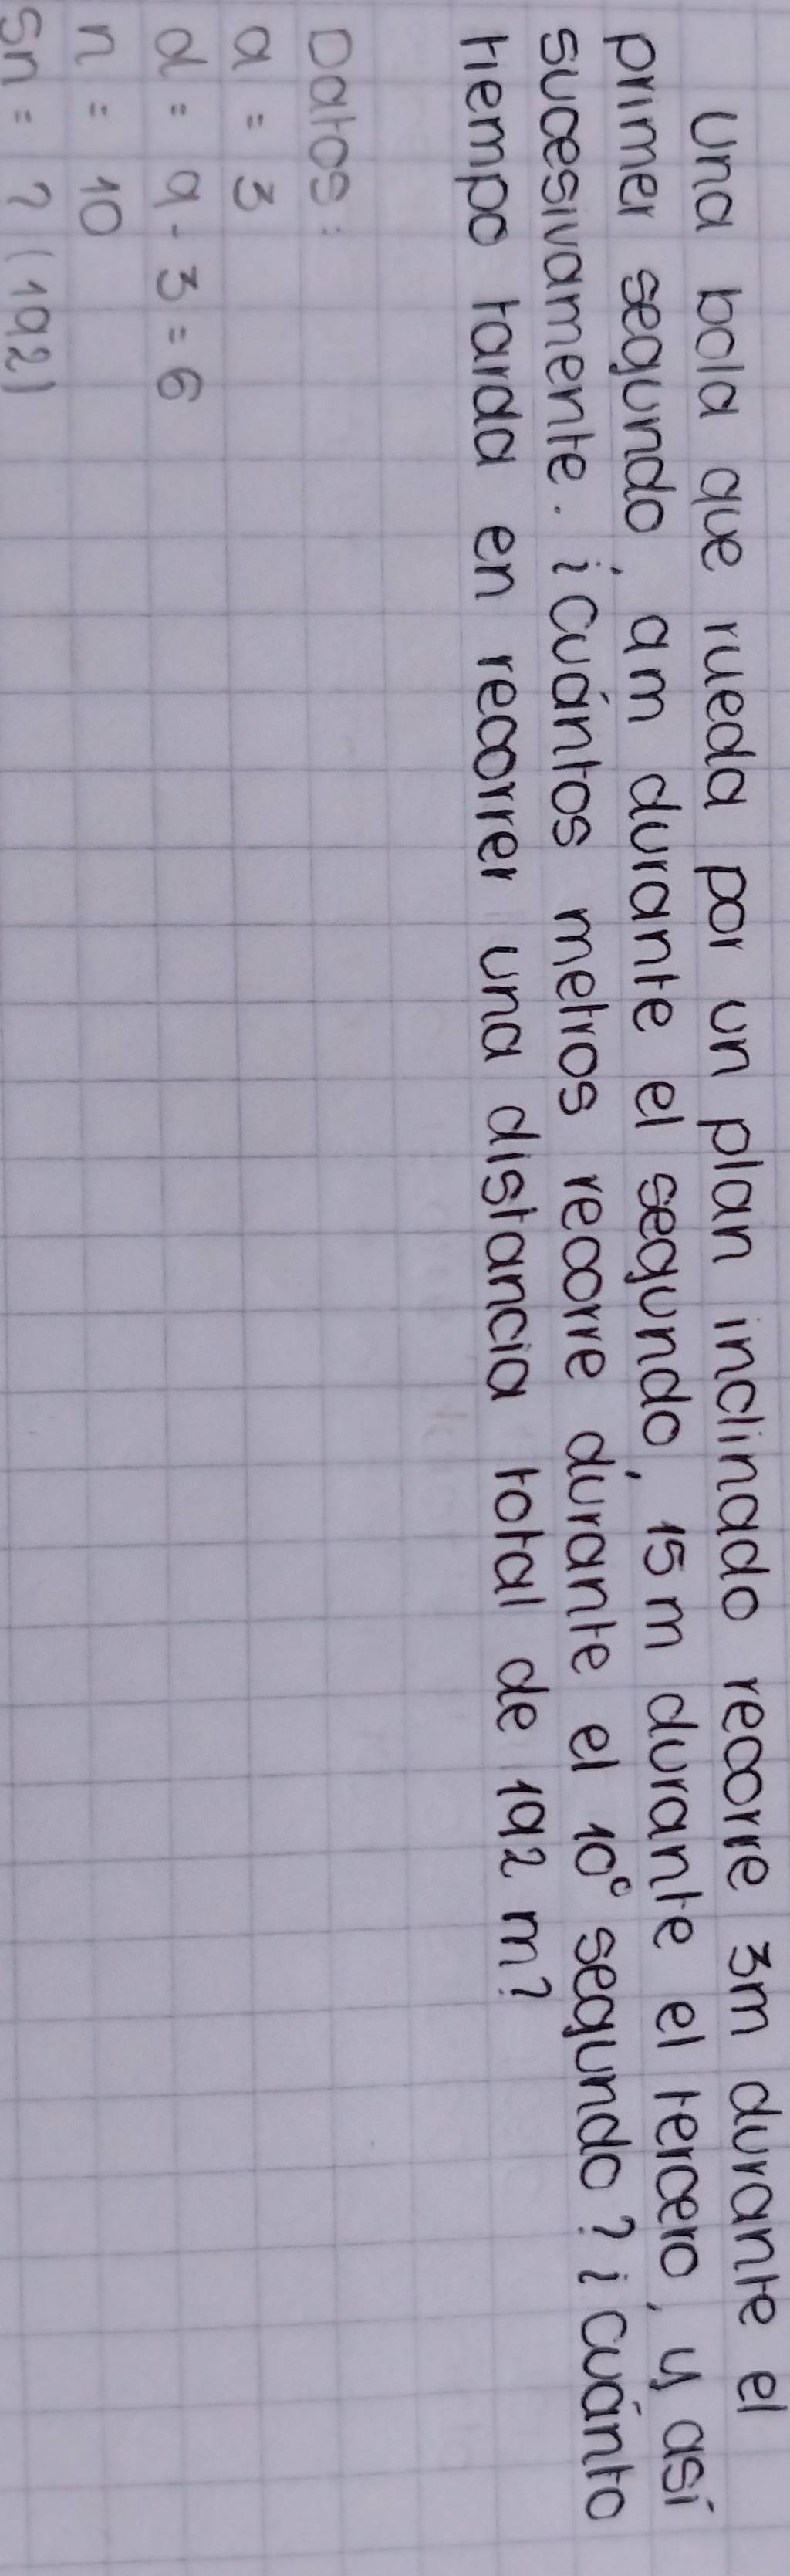 Una bola que rueda por un plan inclinado recorre 3m durante el
primer segundo, 9m durante el segundo, 15m durante el tercero, y así
sucesivamente. ¿Cuántos metros recorre durante el 10° segundo? ¿Cuánto
tiempo tarda en recorrer una distancia total de 192 m?
Datos:
a = 3
d = 9 - 3 = 6
n = 10
Sn = ? (192)